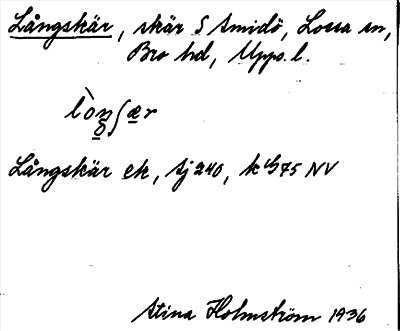 Långskär, skär S Amidö, Lossa sn,
Bro hd, Upps. l.
Långskär ek, sj 240, k 75 NV
Stina Holmström 1936